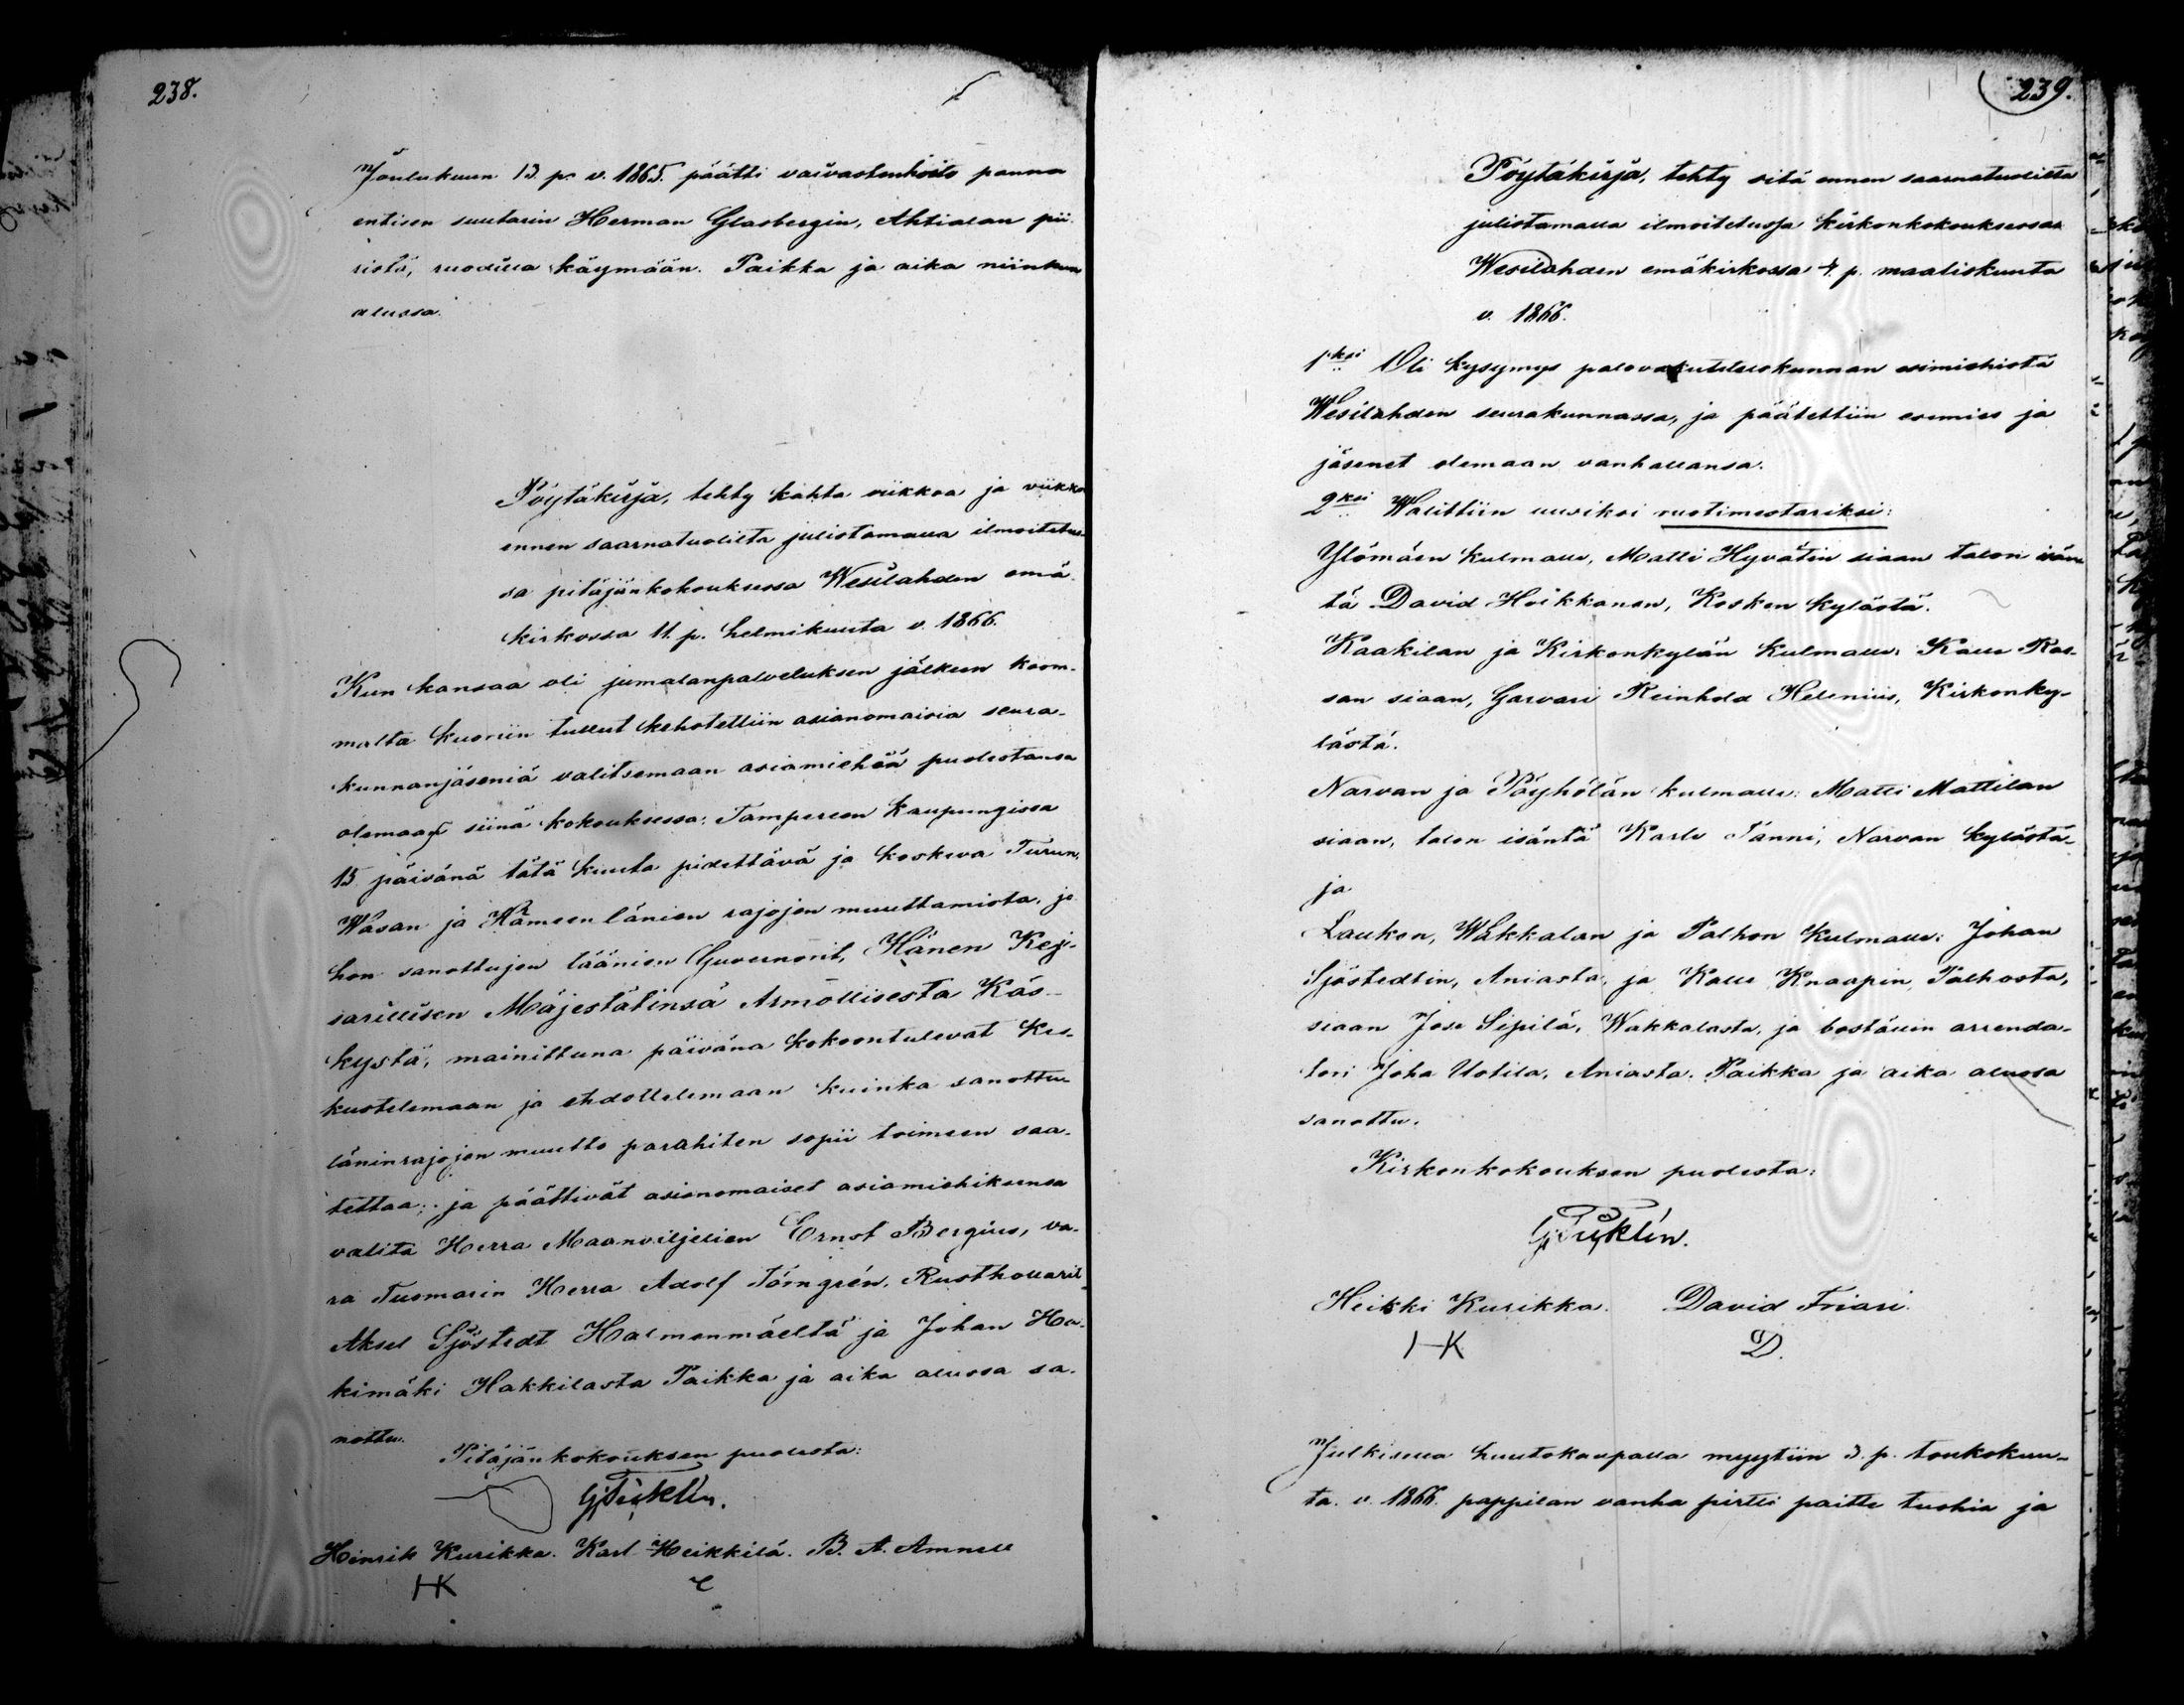 238.
Joulukuun 13. p. v. 1865. päätti vaivastenhoito panna
entisen suutarin Herman Glasbergin, Ahtialan pii-
ristä, ruodilla käymään. Paikka ja aika niinkun
alussa.
Pöytäkirja, tehty kahta viikkoa ja viikko
ennen saarnatuolilta julistamalla ilmoitetus-
sa pitäjänkokouksessa Wesilahden emä-
kirkossa 11. p. helmikuuta v. 1866.
Kun kansaa oli jumalanpalveluksen jälkeen koom-
malta kuoriin tullut kehotettiin asianomaisia seura-
kunnanjäseniä valitsemaan asiamiehiä puolestansa
olemaan siinä kokouksessa, Tampereen kaupungissa
15 päivänä tätä kuuta pidettävä ja koskeva Turun,
Wasan ja Hämeen länien rajojen muuttamista, jo-
hon sanottujen läänien Guvernörit, Hänen Kej-
sarillisen Majestätinsä Armollisesta Käs-
kystä, mainittuna päivänä kokoontulevat kes-
kustelemaan ja ehdottelemaan kuinka sanottu
läninrajojen muutto parahiten sopii toimeen saa-
tettaa; ja päättivät asianomaiset asiamiehiksensa
valita Herra Maanviljelien Ernst Bergius, va-
ra Tuomarin Herra Adolf Törngrén, Rusthollarit
Aksel Sjöstedt Halmenmäeltä ja Johan Ha-
kimäki Hakkilasta Paikka ja aika alussa sa-
nottu.
Pitäjänkokouksen puolesta:
Hinrik Kurikka. Karl Heikkilä. B. A. Amnell
HK
239.
Pöytäkirja, tehty sitä ennen saarnatuolilta
julistamalla ilmoitetussa kirkonkokouksessa
Wesilahden emäkirkossa 4. p. maaliskuuta
v. 1866.
1ksi Oli kysymys palovakuutuskunnan esimiehistä
Wesilahden seurakunnassa, ja päätettiin esimies ja
jäsenet olemaan vanhallansa.
2ksi Walittiin uusiksi ruotimestariksi:
Ylömäen kulmalle, Matti Hyvätin siaan talon isän-
tä David Hoikkanen, Kosken kylästä.
Kaakilan ja Kirkonkylän kulmalle: Kalle Ras-
san siaan, Garvari Reinhold Helenius, Kirkonky-
lästä.
Narvan ja Pöyhölän kulmalle: Matti Mattilan
siaan, talon isäntä Karle Tänni, Narvan kylästä
ja
Laukon, Wakkalan ja Palhon kulmalle: Johan
Sjöstedtin, Aniasta, ja Kalle Knaapin, Palhosta,
siaan Jose Sipilä, Wakkalasta, ja boställin arrenda-
tori Joha Uotila, Aniasta. Paikka ja aika alussa
sanottu.
Kirkonkokouksen puolesta:
Heikki Kurikka. David Friari.
HK D.
Julkisella huutokaupalla myytiin 3. p. toukokuu-
ta v. 1866. pappilan vanha pirtti paitte tuohia ja